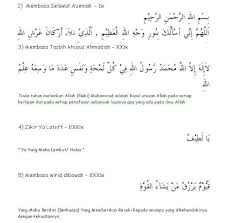 2) Membaca Selawat Azimiah - 1x
بِسْمِ اللَّهِ الرَّحْمَنِ الرَّحِيْمِ
اللَّهُمَّ إِنِّي أَسْأَلُكَ بِنُورِ وَجْهِ اللهِ الْعَظِيمِ ، الَّذِي مَلَأَ أَرْكَانَ عَرْشِ اللهِ
3) Membaca Tasbih khusus Ahmadiah - 100x
لاَ إِلَهَ إِلاَّ اللهُ مُحَمَّدٌ رَسُولُ اللهِ فِي كُلِّ لَمْحَةٍ وَنَفَسٍ عَدَدَ مَا وَسِعَهُ عِلْمُ اللهِ
Tiada tuhan melainkan Allah (Nabi) Muhammad adalah Rasul utusan Allah pada setiap
kerlipan dan pada setiap pernafasan sebanyak luasnya apa yang ada pada ilmu Allah
4) Zikir Ya Latiff - 1000x
يَا لَطِيْفُ
" Ya Yang Maha Lembut/ Halus "
5) Membaca wirid dibawah - 1000x
قَيُّومٌ يَرْزُقُ مَنْ يَشَاءُ القُوَّةَ
Yang Maha Berdiri (Berkuasa) Yang Memberikan Rezeki kepada sesiapa yang dikehendakinya
dengan kekuatannya